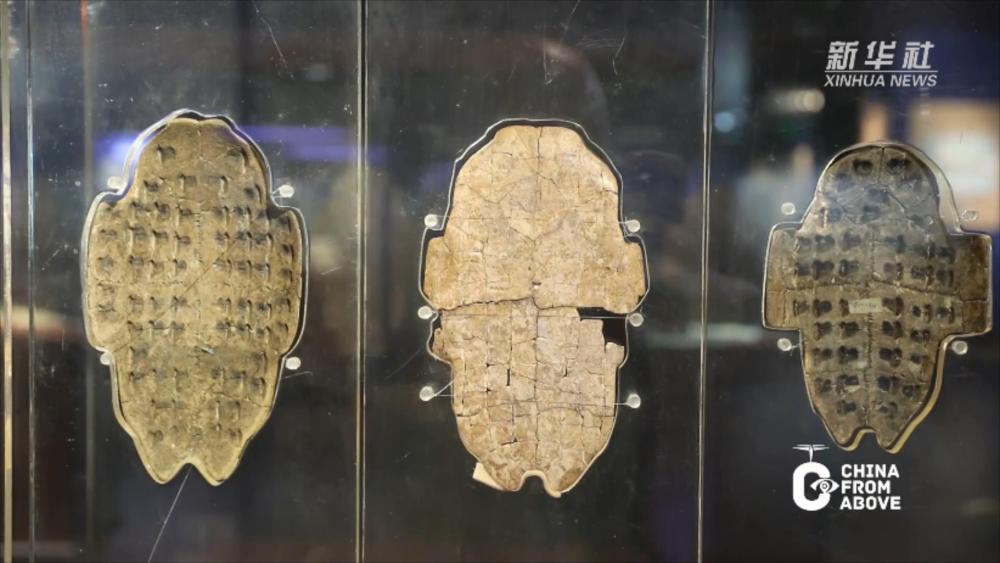 新华社
XINHUA NEWS
CHINA
FROM
ABOVE